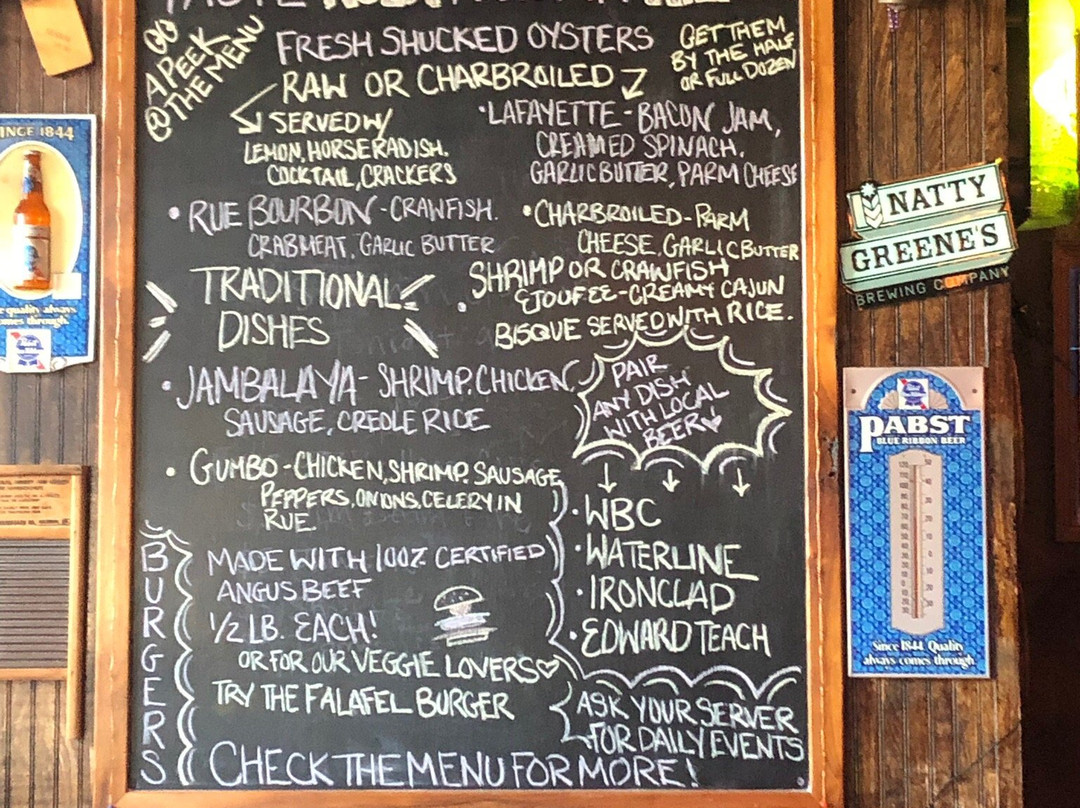 GO
A PEEK
@ THE MENU
FRESH SHUCKED OYSTERS
RAW OR CHARBROILED
GET THEM
BY THE HALF
OR FULL DOZEN
SERVED W/
LEMON, HORSERADISH.
COCKTAIL, CRACKERS
• LAFAYETTE - BACON JAM,
CREAMED SPINACH,
GARLIC BUTTER, PARM CHEESE
• RUE BOURBON - CRAWFISH.
CRABMEAT, GARLIC BUTTER
• CHARBROILED - PARM
CHEESE, GARLIC BUTTER
TRADITIONAL
DISHES
• SHRIMP OR CRAWFISH
ETOUFEE - CREAMY CAJUN
BISQUE SERVED WITH RICE.
• JAMBALAYA - SHRIMP, CHICKEN,
SAUSAGE, CREOLE RICE
PAIR
ANY DISH
WITH LOCAL
BEER♥
• GUMBO - CHICKEN, SHRIMP, SAUSAGE,
PEPPERS, ONIONS, CELERY IN
RUE.
• WBC
• WATERLINE
• IRONCLAD
• EDWARD TEACH
BURGERS
MADE WITH 100% CERTIFIED
ANGUS BEEF
1/2 LB. EACH!
OR FOR OUR VEGGIE LOVERS♥
TRY THE FALAFEL BURGER
ASK YOUR SERVER
FOR DAILY EVENTS
CHECK THE MENU FOR MORE!
SINCE 1844
quality always
comes through.
NATTY
GREENE'S
BREWING COMPANY
PABST
BLUE RIBBON BEER
Since 1844 Quality
always comes through